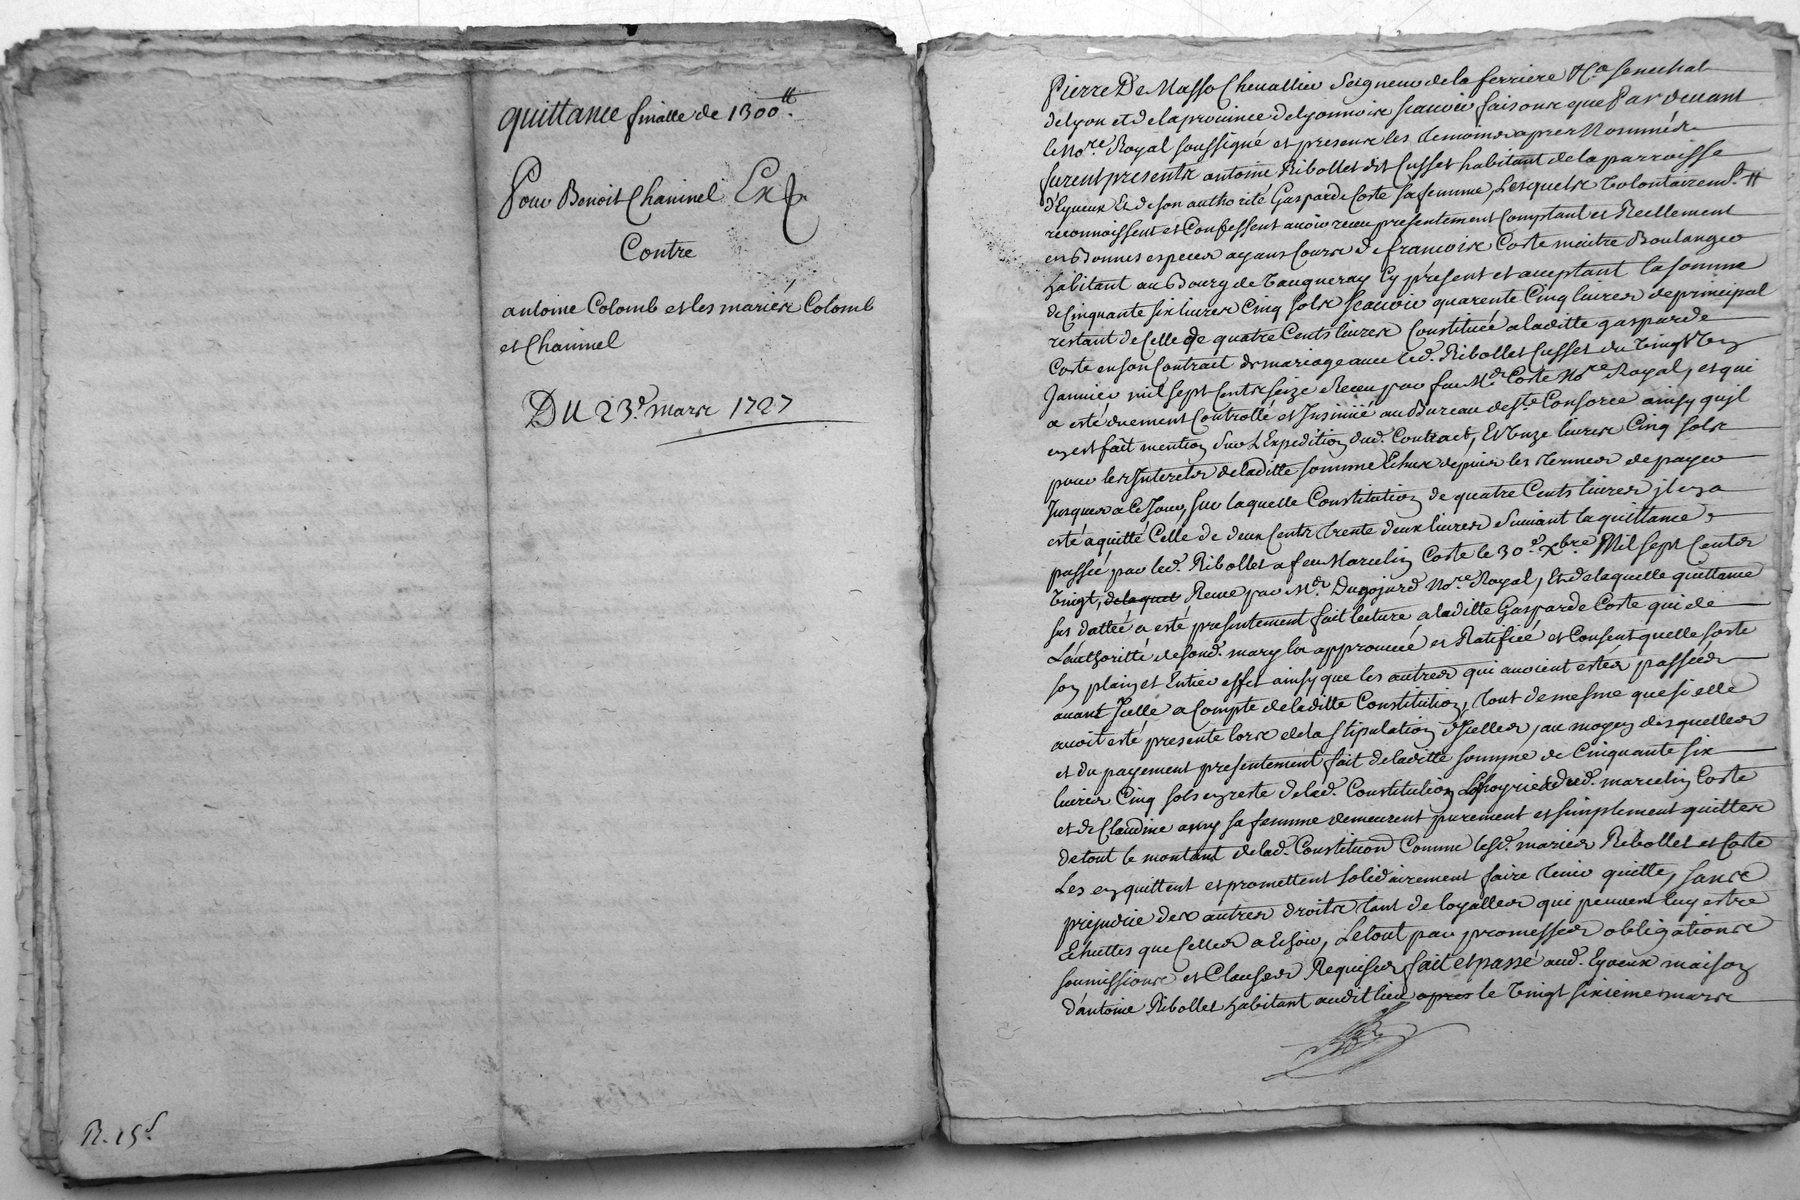 quittance finalle de 1300.tt
Pour Benoit Chaninel Ex.
Contre
antoine Colomb et les mariés Colomb
et Chaninel
DU 23.e mars 1727
R. 15.s
Pierre De Masso Chevallier Seigneur de la ferriere &ca senechal
de lyon et de la province de lyonnois scavoir faisons que Par devant
le No.re Royal soussigné et presens les temoins apres Nommés
furent presents antoine Ribollet dit Cusset habitant de la parroisse
d'Eyveux Et de son authorité Gasparde Coste sa femme, Lesquels volontairem.t
reconnoissent et Confessent avoir receu presentement Comptant et Reellement
en Bonnes especes ayans Cours de francois Coste maitre Boulanger
habitant au Bourg de Vaugneray Cy présent et acceptant la somme
de Cinquante six livres Cinq sols scavoir quarente Cinq livres de principal
restant de Celle de quatre Cents livres Constituée a laditte gasparde
Coste en son Contract de mariage avec led. Ribollet Cusset du vingt
Janvier mil sept Cents seize Receu par feu M.e Coste No.re Royal, et qui
a esté duement Controllé et Insinué au Bureau de s.te Consorce ainsy qu'il
en est fait mention sur L'Expedition dud. Contract, Et Onze livres Cinq sols
pour les Interets de laditte somme Echus depuis les termes de payer
Jusques a Ce Jour, sur laquelle Constitution de quatre Cents livres il en a
esté aquitté Celle de deux Cents trente deux livres suivant la quittance
passée par led. Ribollet a feu Marcelin Coste le 30.e Xbre Mil sept Cents
vingt, delaquel Receue par M.e Dugojard No.re Royal, Et de laquelle quittance
sus dattée a esté presentement fait lecture a laditte Gasparde Coste qui de
L'authoritté de sond. mary l'a approuvée et Ratifiée et Consent quelle sorte
son plain et Entier effet ainsy que les autres qui avoient estés passées
avant Icelle a Compte de laditte Constitution, tout de mesme que si elle
avoit esté présente lors de la stipulation d'Icelles, au moyen desquelles
et du payement presentement fait de laditte somme de Cinquante six
livres Cinq sols en reste de lad. Constitution Les hoyries dud. marcelin Coste
et de Claudine sa femme demeurent purement et simplement quittes
de tout le montant de lad. Constitution Comme lesd. mariés Ribollet et Coste
Les en quittent et promettent solidairement faire tenir quitte, sans
préjudice des autres droits tant de loyalles qui peuvent luy estre
Echuttes que Celles a Echoir, Le tout par promesses obligations
soumissions et Clauses Requises fait et passé aud. Eyveux maison
d'antoine Ribollet habitant audit lieu apres le vingt sixieme mars